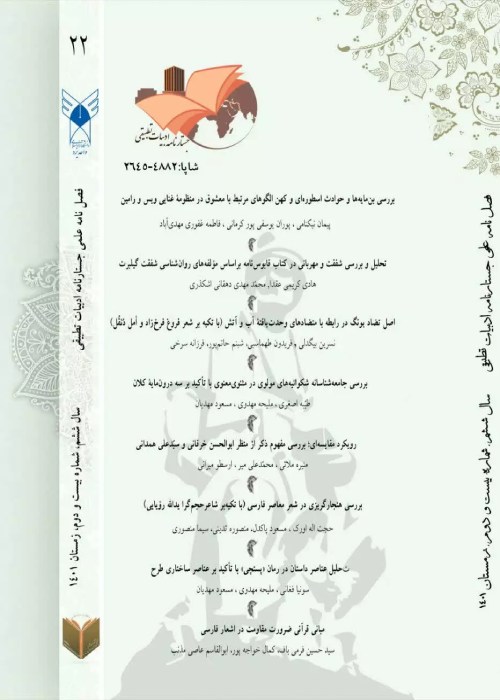 ۲۲
فصل نامه علمی جستارنامه ادبیات تطبیقی
سال ششم، شماره بیست و دوم، زمستان ۱۴۰۱
جستارنامه ادبیات تطبیقی
شاپا: ۴۸۸۲-۲۶۴۵
بررسی بن‌مایه‌ها و حوادث اسطوره‌ای و کهن الگوهای مرتبط با معشوق در منظومهٔ غنایی ویس و رامین
پیمان نیکنامی ، پوران یوسفی پور کرمانی ، فاطمه غفوری مهدی‌آباد
تحلیل و بررسی شفقت و مهربانی در کتاب قابوس‌نامه براساس مؤلفه‌های روان‌شناسی شفقت گیلبرت
هادی کریمی عقدا، محمّد مهدی دهقانی اشکذری
اصل تضاد یونگ در رابطه با متضادهای وحدت‌یافتهٔ آب و آتش (با تکیه بر شعر فروغ فرخ‌زاد و أمل دُنقُل)
نسرین بیگدلی ، فریدون طهماسبی، شبنم حاتم‌پور، فرزانه سرخی
بررسی جامعه‌شناسانه شکوائیه‌های مولوی در مثنوی‌معنوی با تأکید بر سه درون‌مایهٔ کلان
طیّبه اصغری ، ملیحه مهدوی ، مسعود مهدیان
رویکرد مقایسه‌ای: بررسی مفهوم ذکر از منظر ابوالحسن خرقانی و سیّدعلی همدانی
منیره ملائی ، محمدعلی میر ، ارسطو میرانی
بررسی هنجارگریزی در شعر معاصر فارسی (با تکیه‌بر شاعرحجم‌گرا یدالله رؤیایی)
حجت اله اورک ، مسعود پاکدل، منصوره تدینی، سیما منصوری
تحلیل عناصر داستان در رمان «پستچی» با تأکید بر عناصر ساختاری طرح
سونیا فغانی ، ملیحه مهدوی ، مسعود مهدیان
مبانی قرآنی ضرورت مقاومت در اشعار فارسی
سید حسین قرمی بافت، کمال خواجه پور، ابوالقاسم عاصی مذنب
فصل نامه علمی جستارنامه ادبیات تطبیقی
سال ششم، شماره بیست و دوم، زمستان ۱۴۰۱